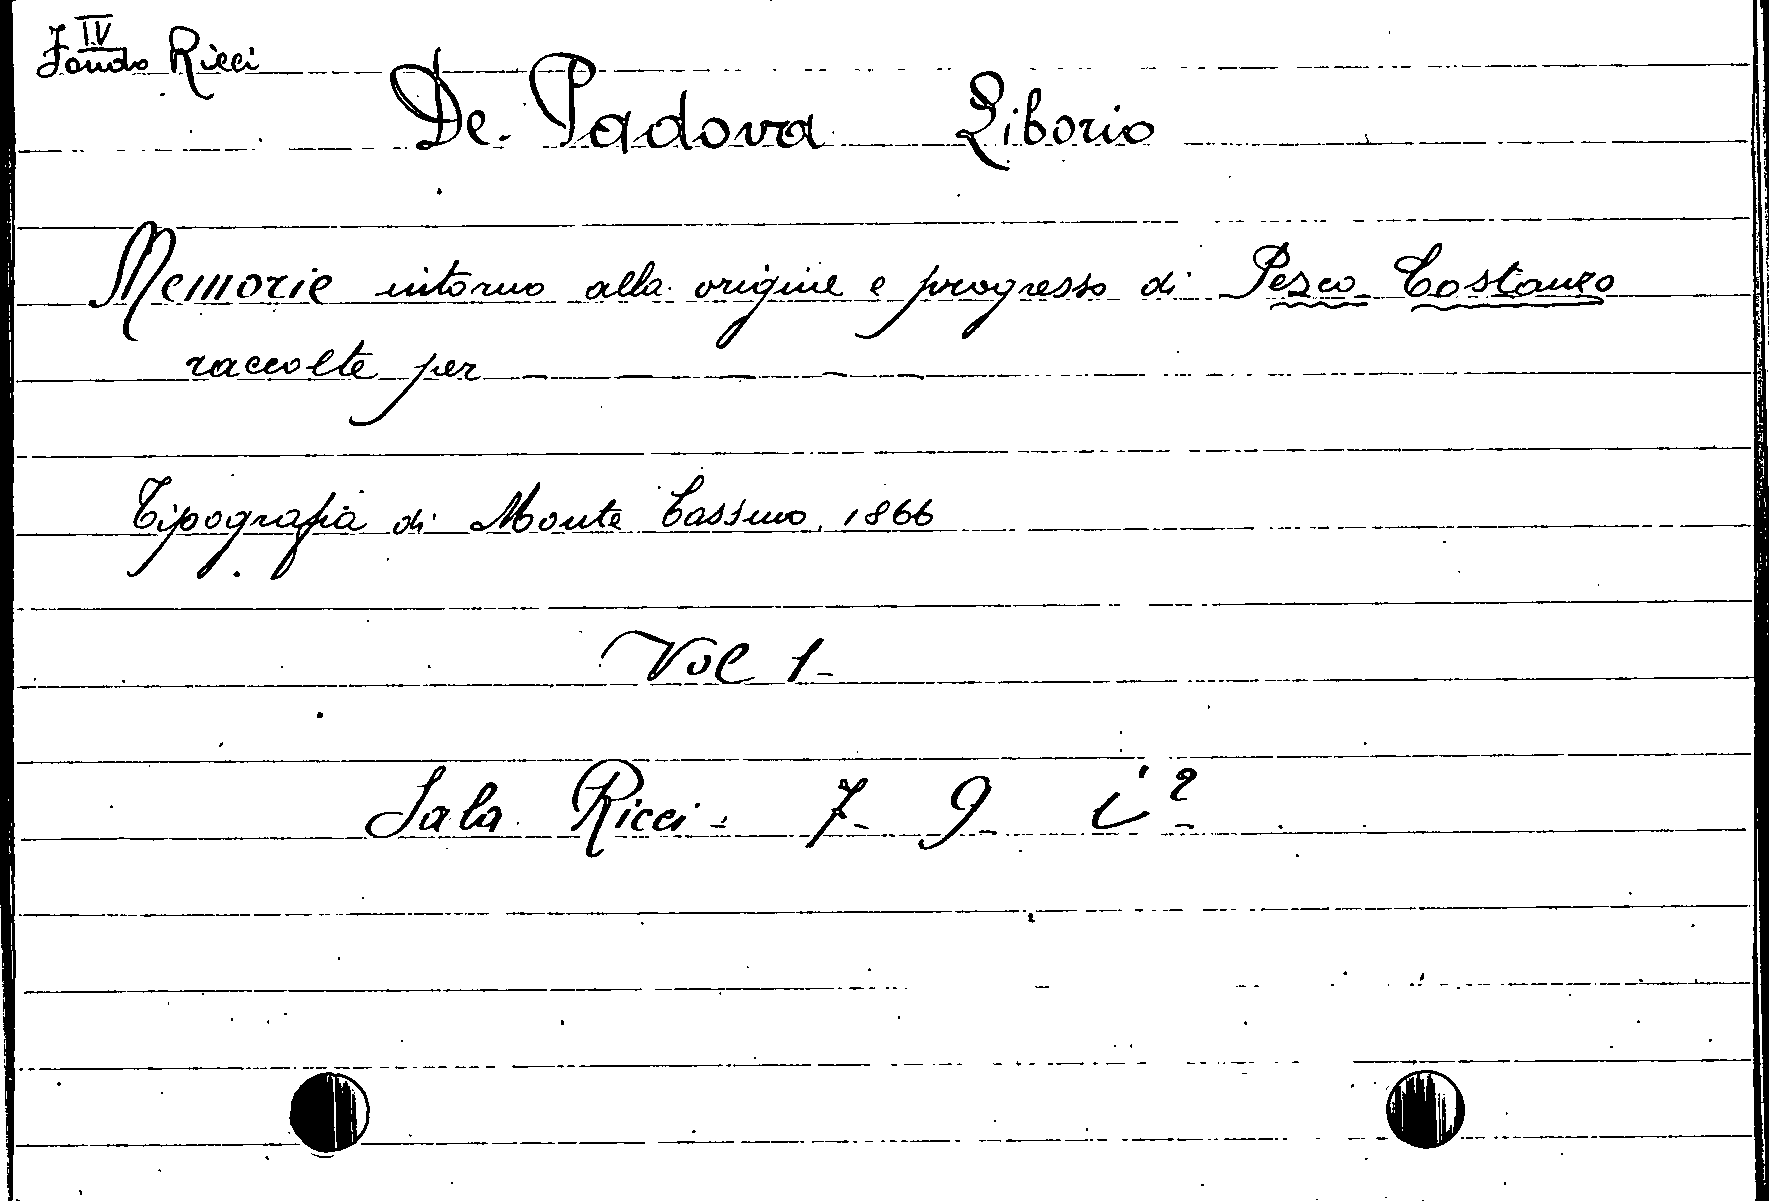 IV
Fondo Ricci
De Padova Liborio
Memorie intorno alla origine e progresso di Pesco Costanzo
raccolte per
Tipografia di Monte Cassino, 1866
Vol 1-
Sala Ricci - 7- 9- i²